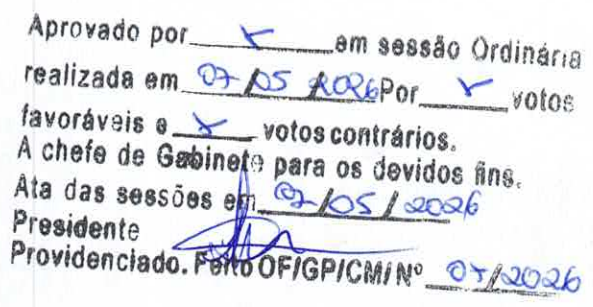 Aprovado por x em sessão Ordinária
realizada em 07/05/2026 Por x votos
favoráveis e x votos contrários.
A chefe de Gabinete para os devidos fins.
Ata das sessões em 07/05/2026
Presidente
Providenciado. Feito OF/GP/CM/Nº /2026